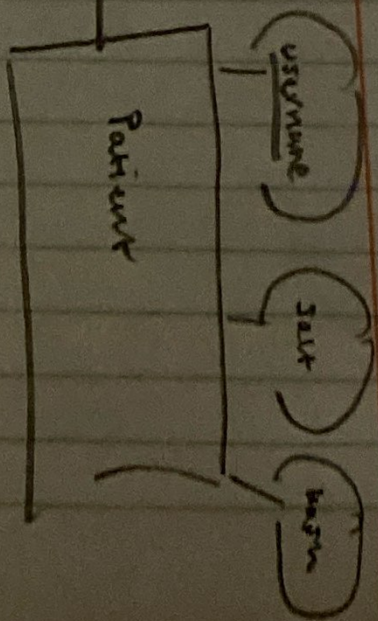 username
salt
hash
Patient